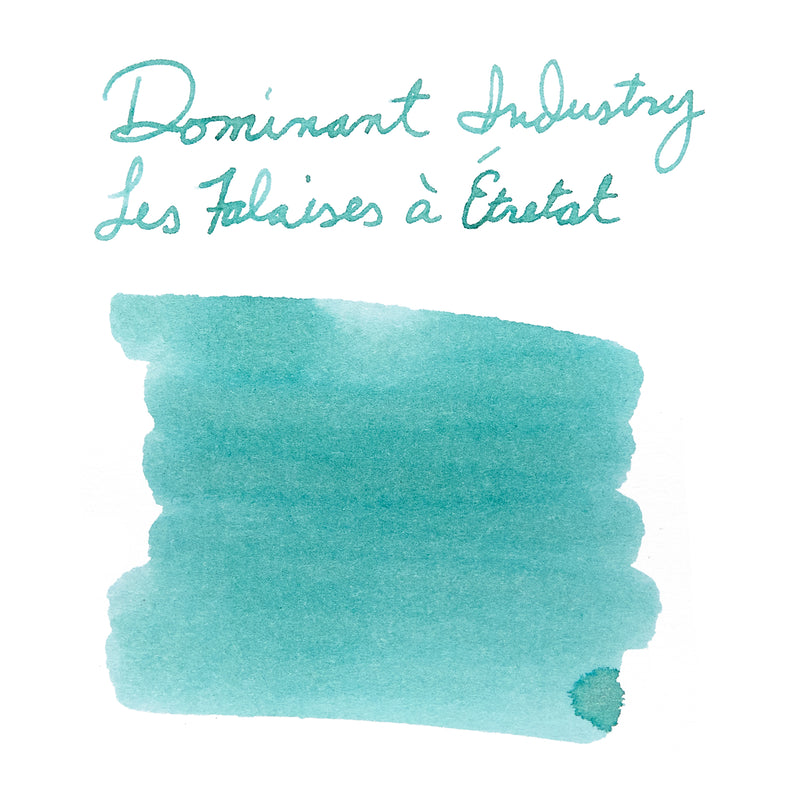 Dominant Industry
Les Falaises à Étretat